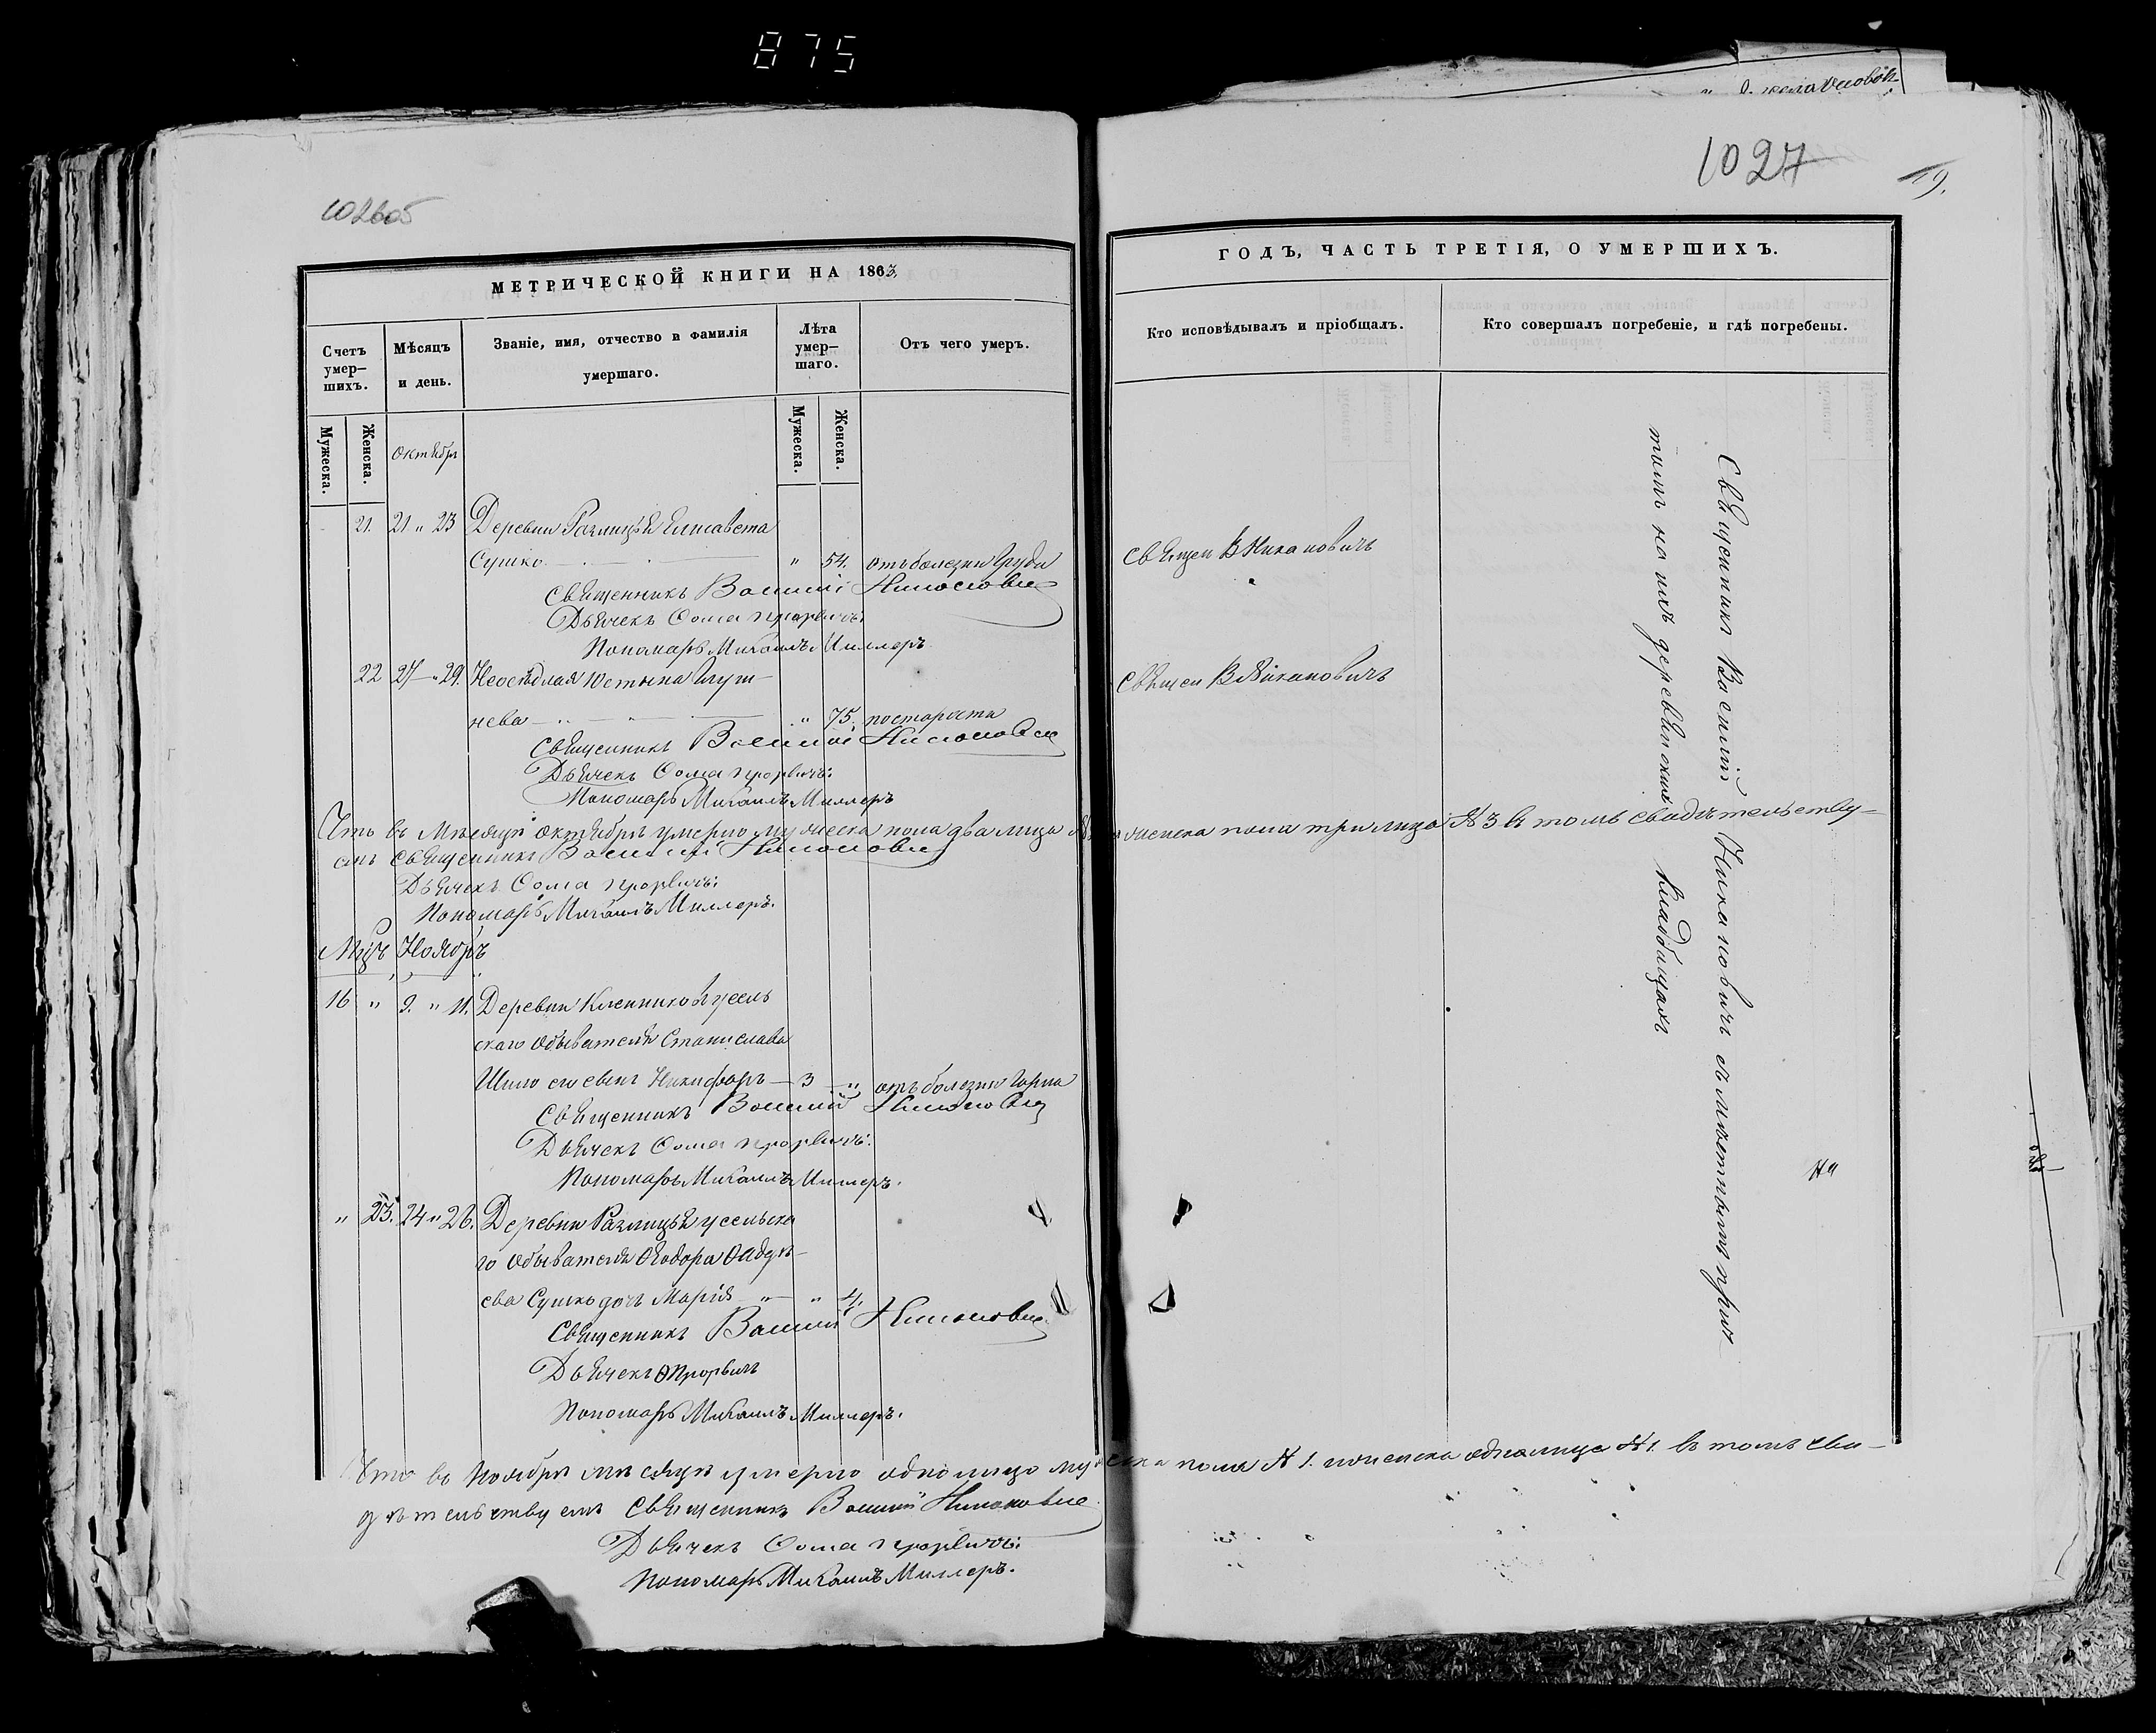 875
1027
19.
МЕТРИЧЕСКОЙ КНИГИ НА 1863,
Счетъ умер-шихъ.
Мѣсяцъ и день.
Званіе, имя, отчество и фамилія умершаго.
Лѣта умер-шаго.
Отъ чего умеръ.
Мужеска.
Женска.
Мужеска.
Женска.
Октябрь
21. 21 " 23 Деревни Елисавета
Сушко " 54. отъ болезни груди
Священникъ Василій
Дьячекъ Ѳома Прорвичъ.
Пономарь Михаилъ Миллеръ
22 27 " 29. Юстына
нева " 75. по старости
Священникъ Василій
Дьячекъ Ѳома Прорвичъ.
Пономарь Михаилъ Миллеръ
Что въ Мѣсяцѣ Октябрѣ умерло мужеска пола два лица
Священникъ Василій
Дьячекъ Ѳома Прорвичъ.
Пономарь Михаилъ Миллеръ.
Ноябрь
16 " 9. " 11. Деревни
скаго обывателя Станислава
Шило его сынъ Никифоръ 3 " отъ болезни горла
Священникъ Василій
Дьячекъ Ѳома Прорвичъ.
Пономарь Михаилъ Миллеръ.
" 23. 24 " 26. Деревни
го обывателя Ѳеодора
ева Сушко дочь Марія " " 4.
Священникъ Василій
Дьячекъ Ѳ Прорвичъ
Пономарь Михаилъ Миллеръ.
Что въ Ноябрѣ мѣсяцѣ умерло одно лицо
дѣтельствуемъ Священникъ Василій
Дьячекъ Ѳома Прорвичъ.
Пономарь Михаилъ Миллеръ.
ГОДЪ, ЧАСТЬ ТРЕТІЯ, О УМЕРШИХЪ.
Кто исповѣдывалъ и пріобщалъ.
Кто совершалъ погребеніе, и гдѣ погребены.
Священ В Никановичъ
Священ В Никановичъ
женска пола три лица № 3 въ томъ свидѣтельству-
пола № 1. женска одно лице № 1. въ томъ сви-
Священникъ Василій Никановичъ съ мѣстнымъ прич-
томъ на ихъ деревенскихъ кладбищахъ